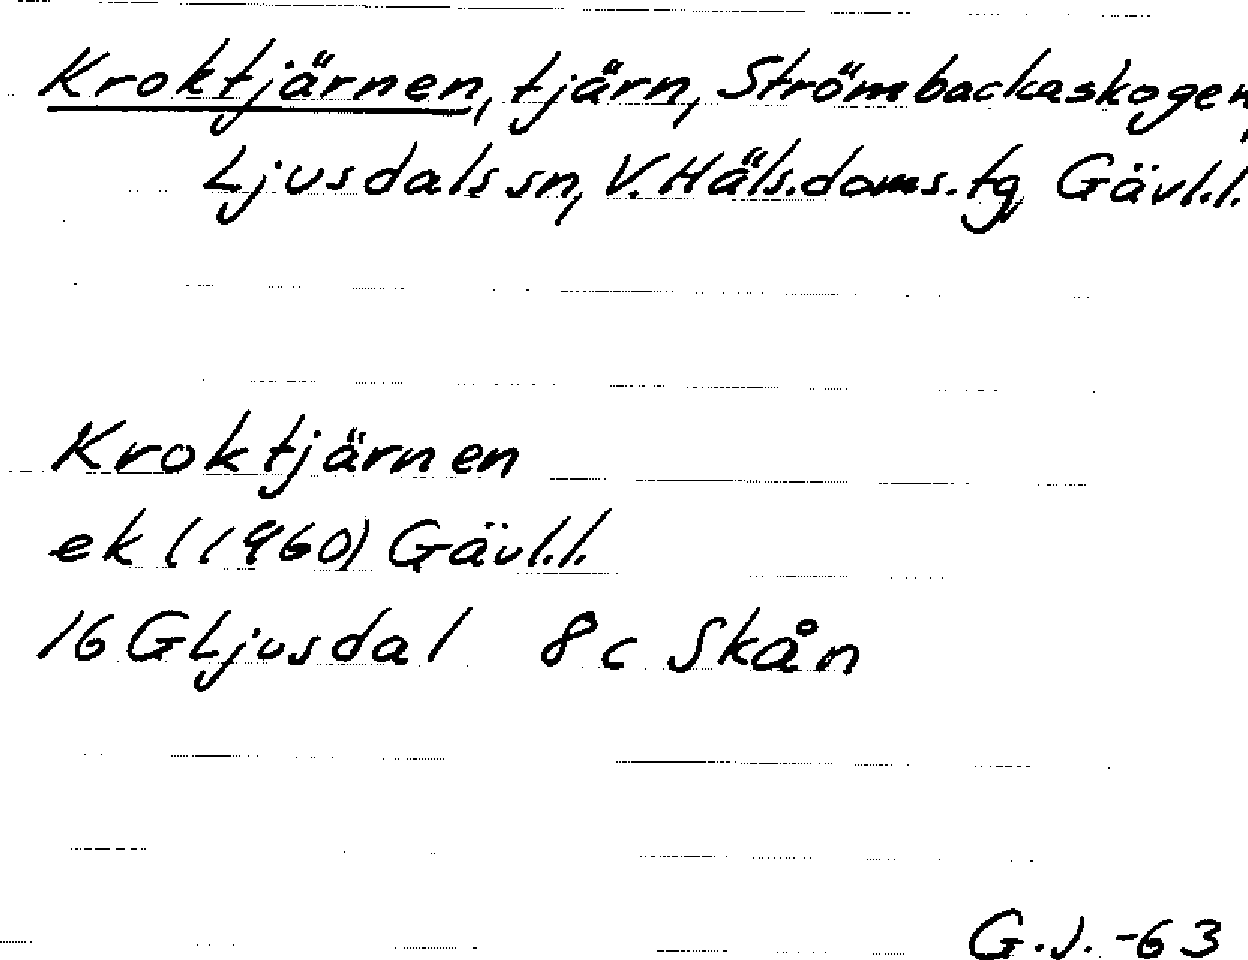 Kroktjärnen, tjärn, Strömbackaskogen,
Ljusdals sn, V. Häls. doms. tg, Gävl. l.
Kroktjärnen
ek (1960) Gävl. l.
16 G Ljusdal 8 c Skån
G.J. -63